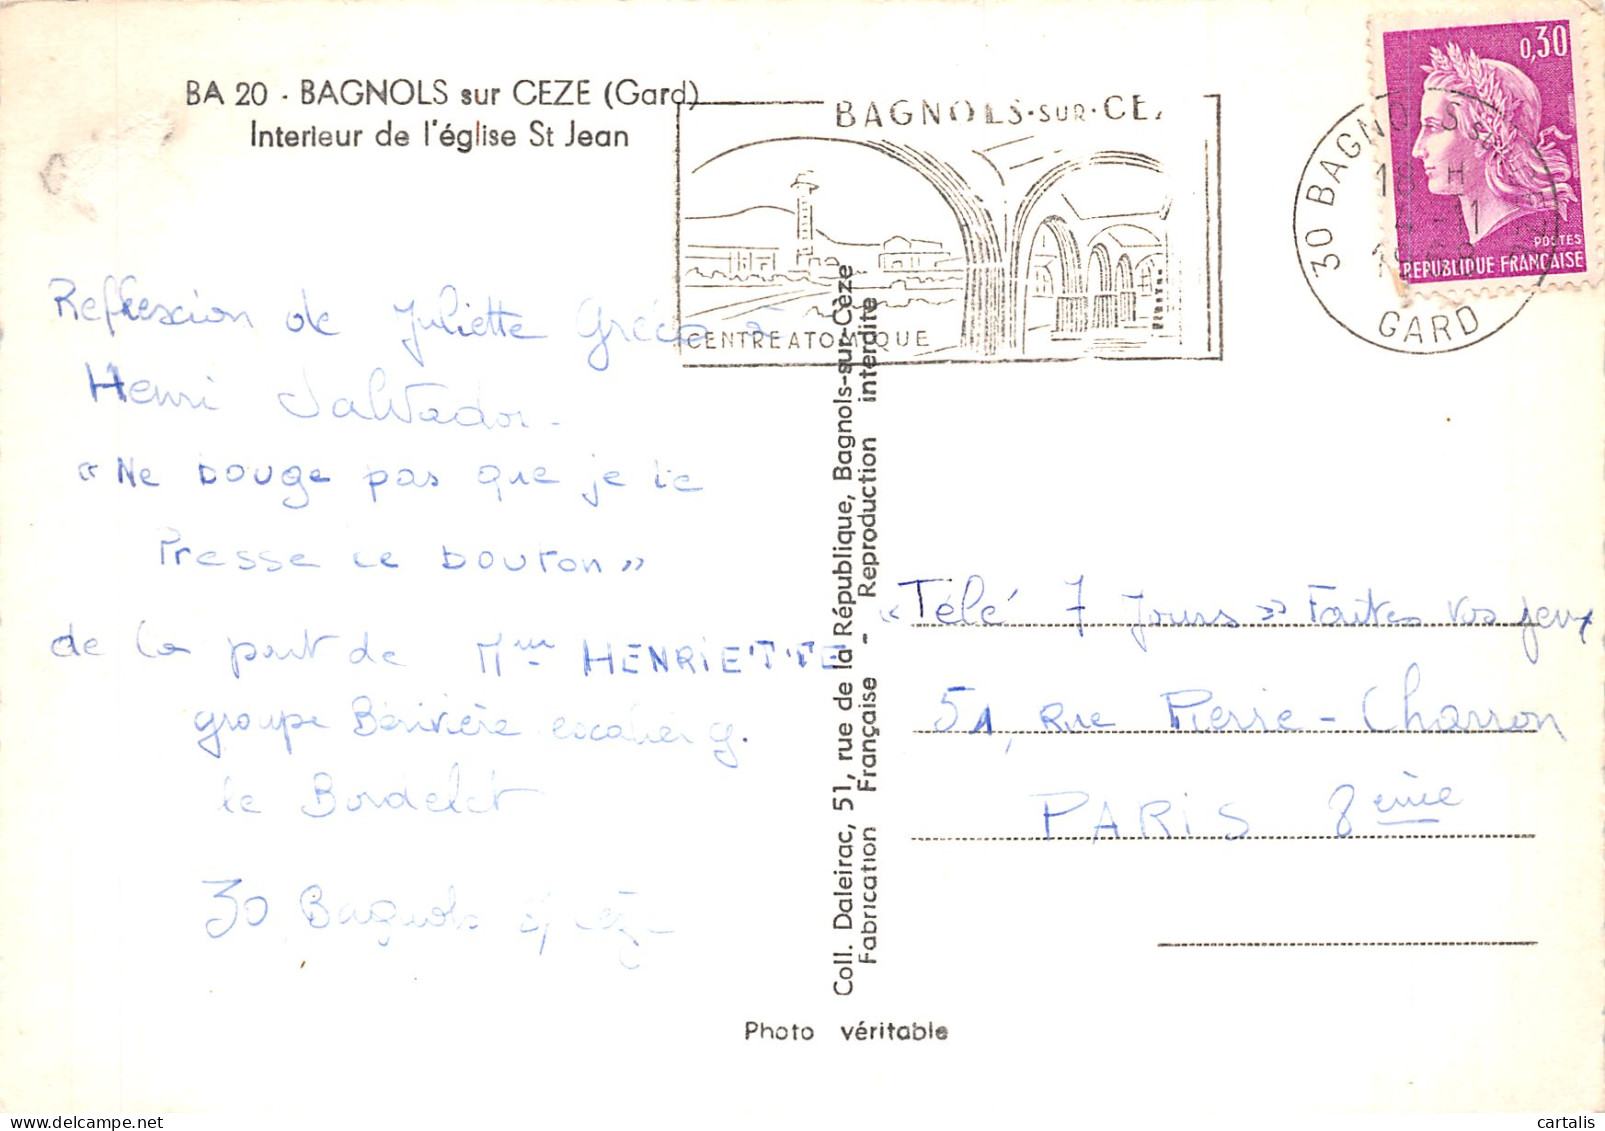 BA 20 - BAGNOLS sur CEZE (Gard)
Interieur de l'église St Jean
BAGNOLS-SUR-CE
CENTRE ATOMIQUE
30 BAGNOLS
18 H
4 -11
1968
GARD
0,30
POSTES
REPUBLIQUE FRANCAISE
Reflexion de Juliette Gréco à
Henri Salvador -
« Ne bouge pas que je te
Presse le bouton »
de la part de Mme HENRIETTE
groupe Bérivière escalier g.
le Bordelet
30 Bagnols s/ cèze
Coll. Daleirac, 51, rue de la République, Bagnols-sur-Cèze
Fabrication Française - Reproduction interdite
« Télé 7 Jours » Faites vos jeux
51, Rue Pierre - Charron
PARIS 8eme
Photo véritable
cartalis
delcampe.net